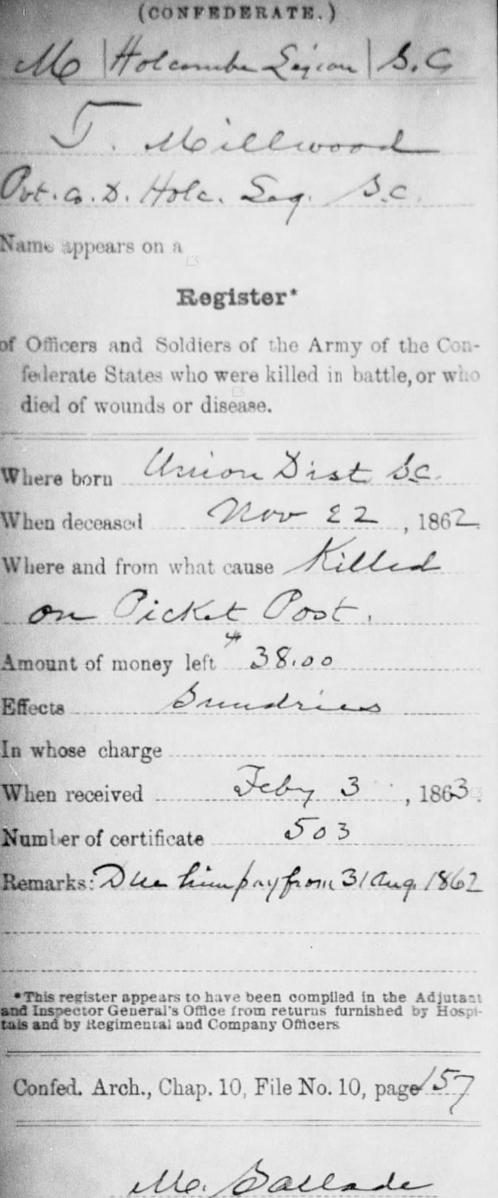 (CONFEDERATE.)
M | Holcombe Legion | S. C.
T. Millwood
Pvt. Co. D. Holc. Leg. S.C.
Name appears on a
Register*
of Officers and Soldiers of the Army of the Con-
federate States who were killed in battle, or who
died of wounds or disease.
Where born Union Dist S.C.
When deceased Nov 22, 1862.
Where and from what cause Killed
on Picket Post.
Amount of money left $38.00
Effects Sundries
In whose charge
When received Feby 3, 1863.
Number of certificate 503
Remarks: Due him pay from 31 Aug 1862
*This register appears to have been compiled in the Adjutant
and Inspector General's Office from returns furnished by Hospi-
tals and by Regimental and Company Officers
Confed. Arch., Chap. 10, File No. 10, page 157
M.